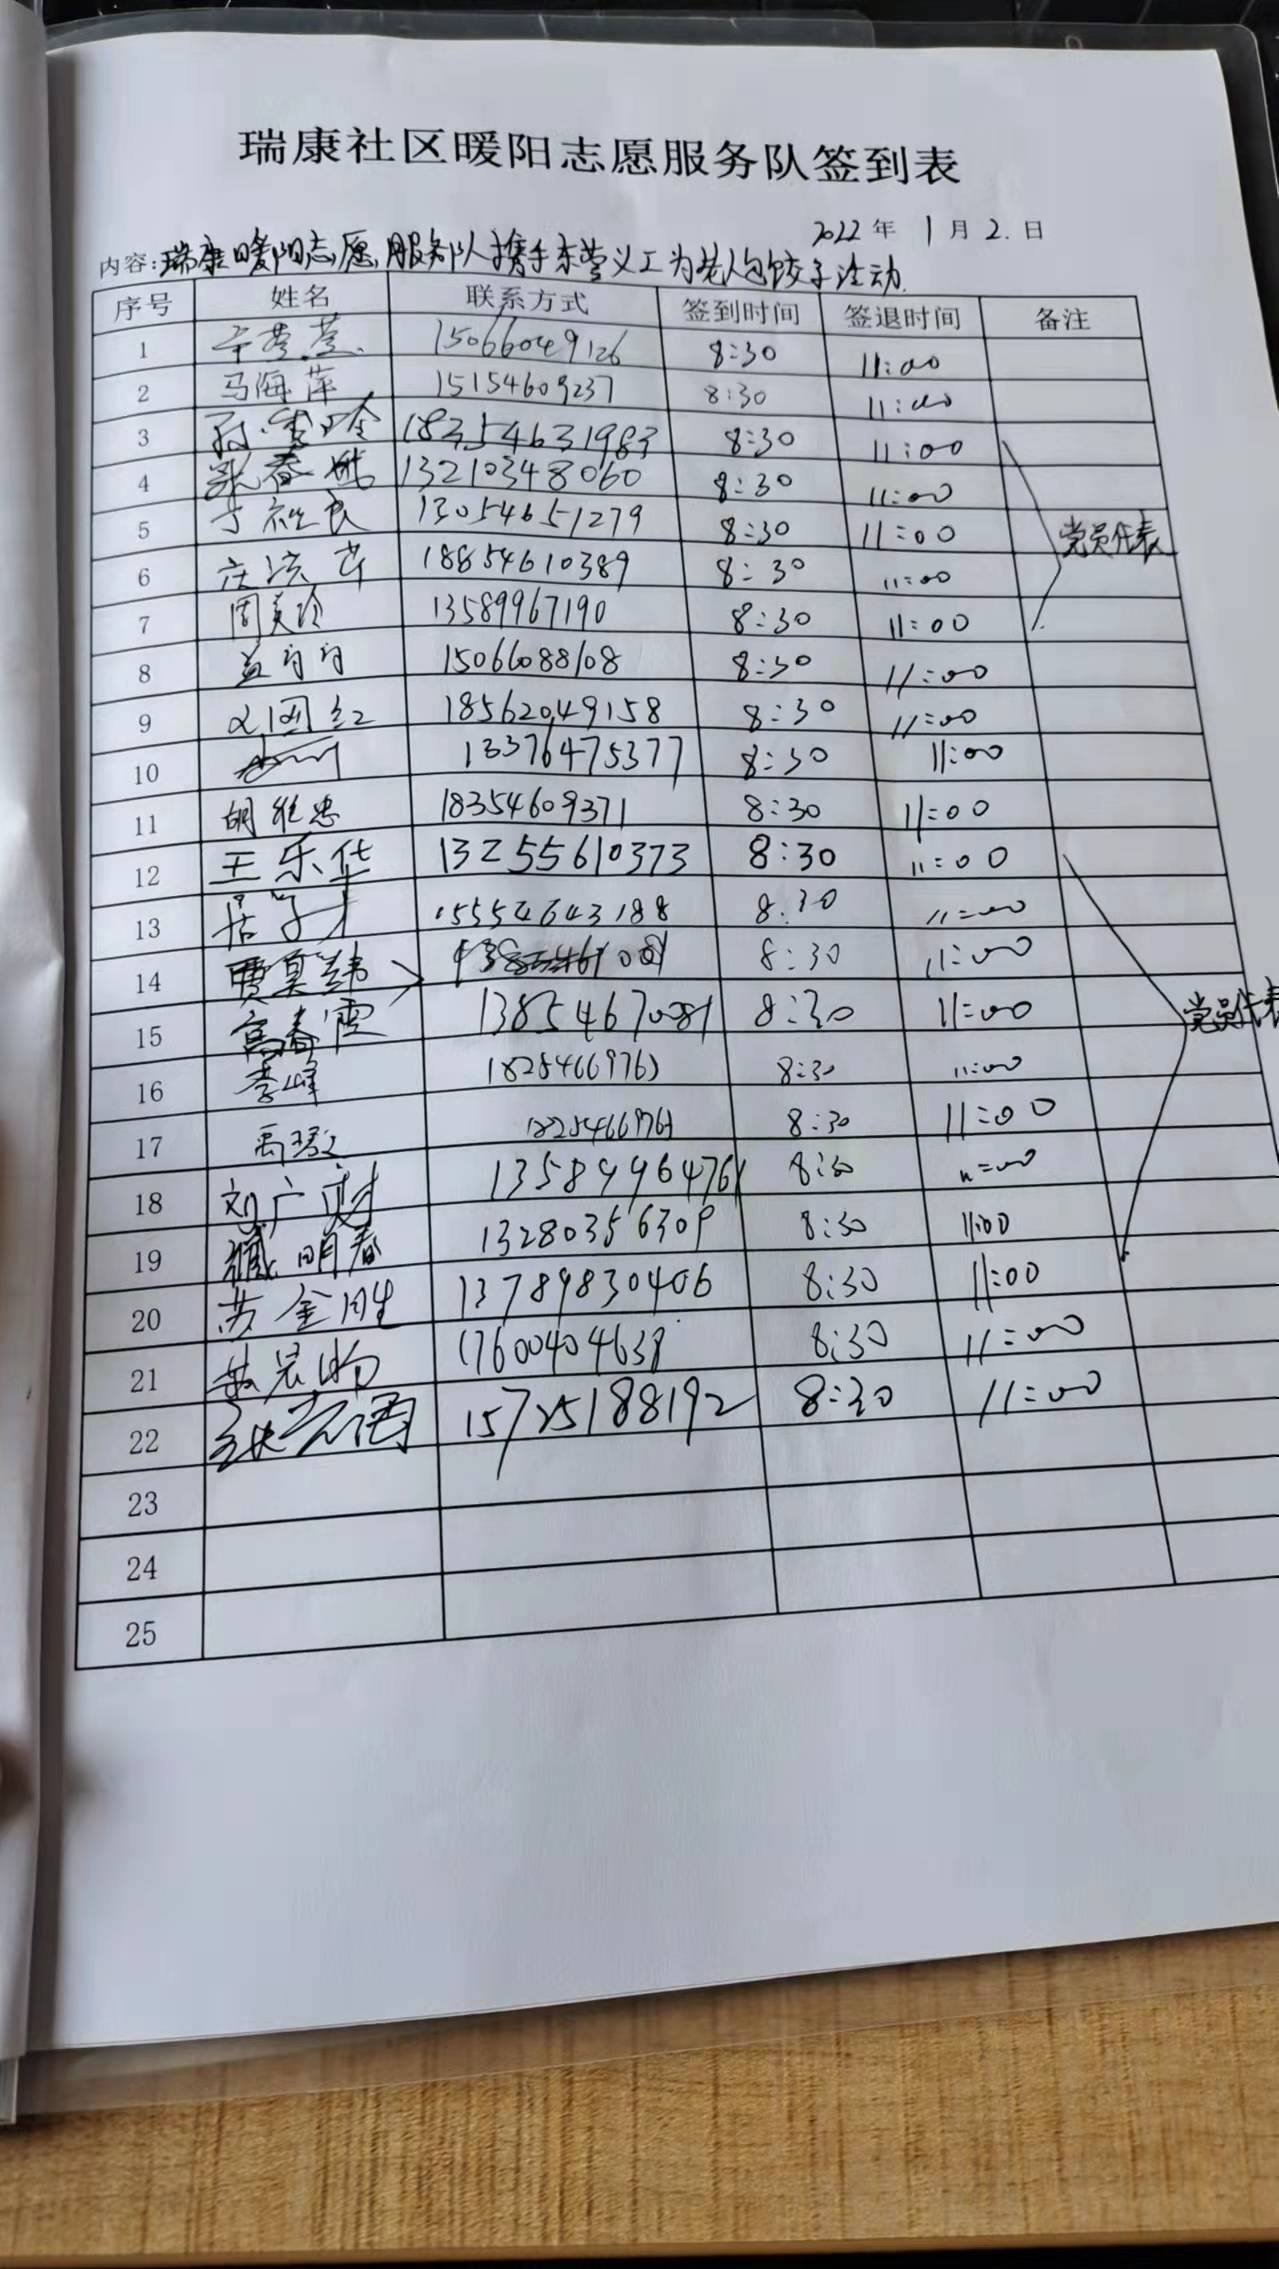 瑞康社区暖阳志愿服务队签到表
2022年1月2.日
内容:瑞康暖阳志愿服务队携手东营义工为老人包饺子活动.
序号 姓名 联系方式 签到时间 签退时间 备注
1 15066049126 8:30 11:00
2 马海萍 15154609237 8:30 11:00
3 18354631983 8:30 11:00
4 张春 13210348060 8:30 11:00
5 于 13054651279 8:30 11:00 党员代表
6 18854610389 8:30 11:00
7 周美玲 13589967190 8:30 11:00
8 15066088108 8:30 11:00
9 刘国红 18562049158 8:30 11:00
10 13376475377 8:30 11:00
11 胡 忠 18354609371 8:30 11:00
12 王乐华 13255610373 8:30 11:00
13 15554643188 8:30 11:00
14 贾 8:30 11:00
15 高春霞 13854670081 8:30 11:00 党员代表
16 李峰 18254669763 8:30 11:00
17 8:30 11:00
18 刘广财 13589964761 8:30 11:00
19 臧明春 13280356309 8:30 11:00
20 苏金胜 13789830406 8:30 11:00
21 17600404638 8:30 11:00
22 张 15725188192 8:30 11:00
23
24
25